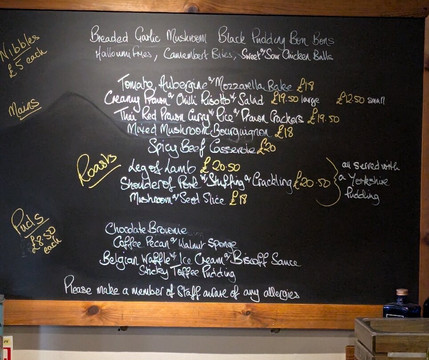 Nibbles
£5 each
Breaded Garlic Mushroom Black Pudding Bon Bons
Halloumi Fries, Camembert Bites, Sweet & Sour Chicken Balls
Mains
Tomato, Aubergine & Mozzarella Bake £18
Creamy Prawn & Chilli Risotto & Salad £19.50 large £12.50 small
Thai Red Prawn Curry & Rice & Prawn Crackers £19.50
Mixed Mushroom Bourguignon £18
Spicy Beef Casserole £20
Roasts
Leg of Lamb £20.50
Shoulder of Pork & Stuffing & Crackling £20.50
Mushroom & Seed Slice £18
all served with
a Yorkshire
Pudding
Puds
£8.50
each
Chocolate Brownie
Coffee Pecan & Walnut Sponge
Belgian Waffle & Ice Cream & Biscoff Sauce
Sticky Toffee Pudding
Please make a member of Staff aware of any allergies